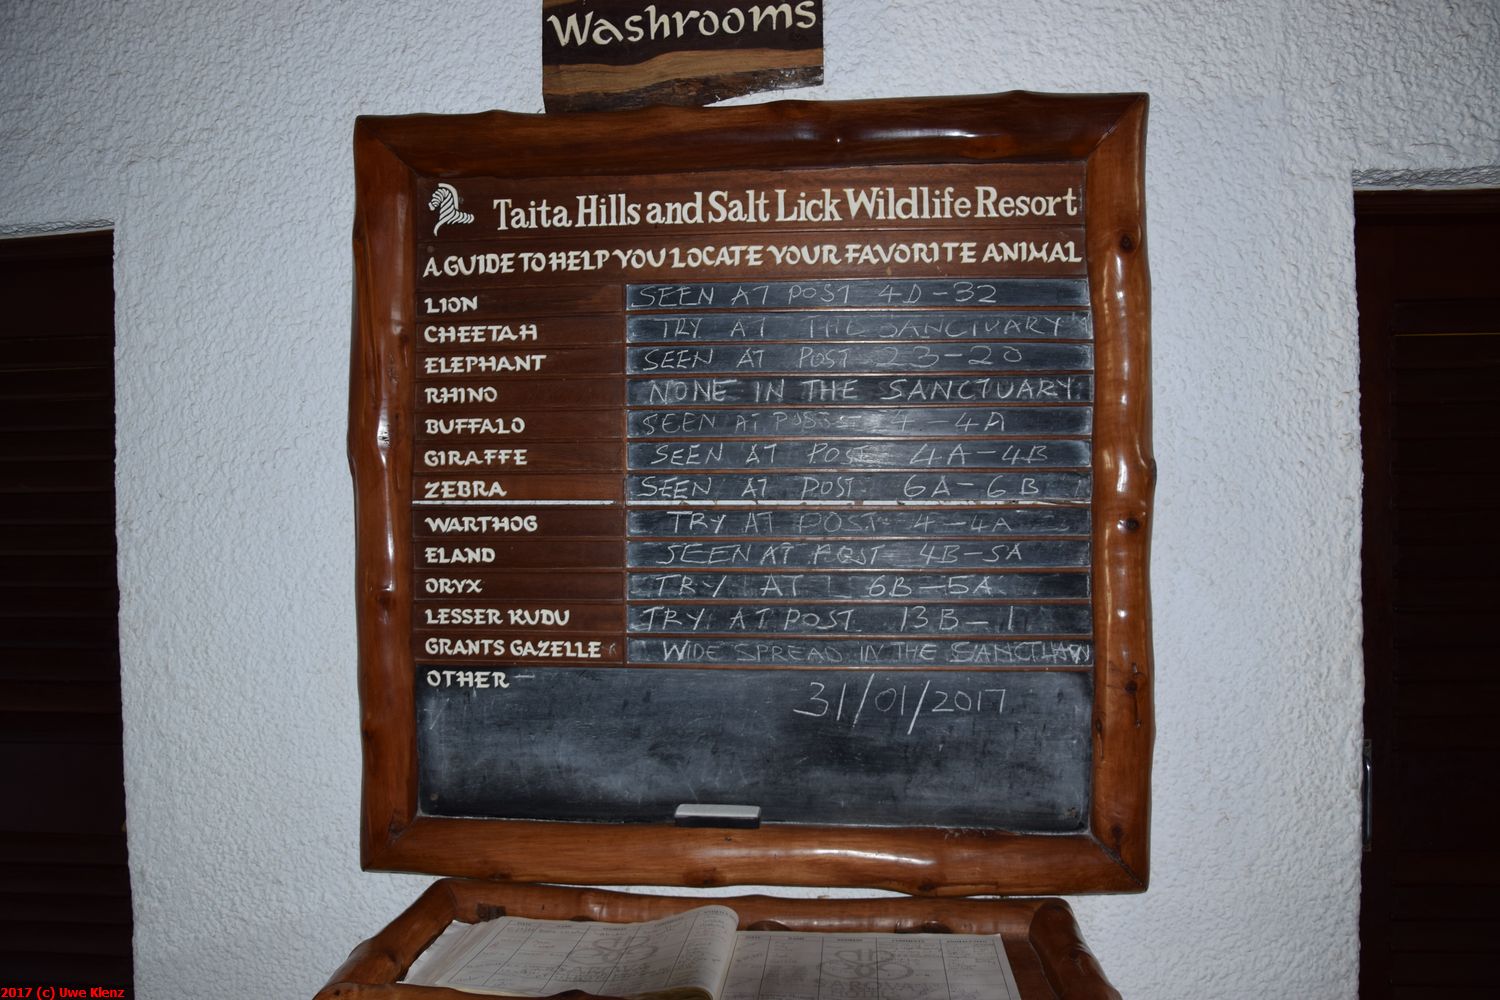 Washrooms
Taita Hills and Salt Lick Wildlife Resort
A GUIDE TO HELP YOU LOCATE YOUR FAVORITE ANIMAL
LION SEEN AT POST 4D-32
CHEETAH TRY AT THE SANCTUARY
ELEPHANT SEEN AT POST 23-20
RHINO NONE IN THE SANCTUARY
BUFFALO SEEN AT POST 4-4A
GIRAFFE SEEN AT POST 4A-4B
ZEBRA SEEN AT POST 6A-6B
WARTHOG TRY AT POST 4-4A
ELAND SEEN AT POST 4B-5A
ORYX TRY AT 6B-5A
LESSER KUDU TRY AT POST 13B-1
GRANTS GAZELLE WIDE SPREAD IN THE
OTHER
31/01/2017
2017 (c) Uwe Klenz